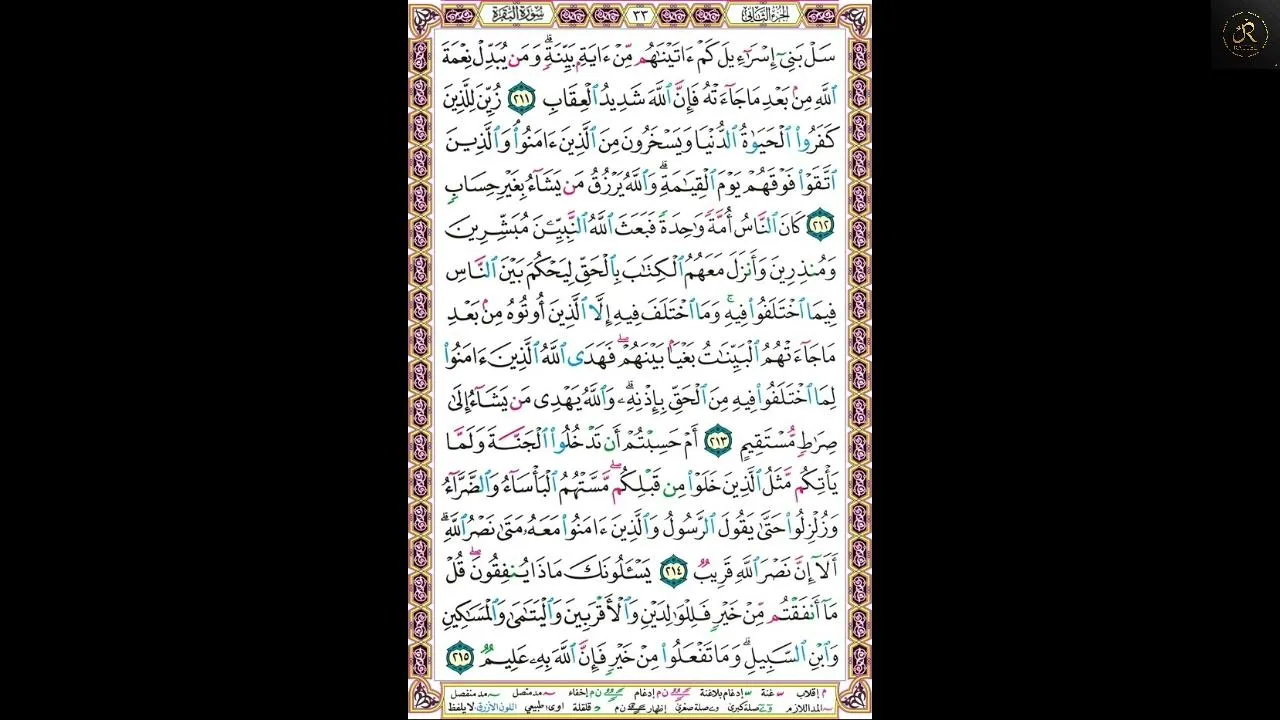 الجزء الثاني ٣٣ سورة البقرة
سَلْ بَنِىٓ إِسْرَٰٓءِيلَ كَمْ ءَاتَيْنَٰهُم مِّنْ ءَايَةٍۭ بَيِّنَةٍۗ وَمَن يُبَدِّلْ نِعْمَةَ
ٱللَّهِ مِنۢ بَعْدِ مَا جَآءَتْهُ فَإِنَّ ٱللَّهَ شَدِيدُ ٱلْعِقَابِ ٢١١ زُيِّنَ لِلَّذِينَ
كَفَرُوا۟ ٱلْحَيَوٰةُ ٱلدُّنْيَا وَيَسْخَرُونَ مِنَ ٱلَّذِينَ ءَامَنُوا۟ۘ وَٱلَّذِينَ
ٱتَّقَوْا۟ فَوْقَهُمْ يَوْمَ ٱلْقِيَٰمَةِۗ وَٱللَّهُ يَرْزُقُ مَن يَشَآءُ بِغَيْرِ حِسَابٍ
٢١٢ كَانَ ٱلنَّاسُ أُمَّةً وَٰحِدَةً فَبَعَثَ ٱللَّهُ ٱلنَّبِيِّـۧنَ مُبَشِّرِينَ
وَمُنذِرِينَ وَأَنزَلَ مَعَهُمُ ٱلْكِتَٰبَ بِٱلْحَقِّ لِيَحْكُمَ بَيْنَ ٱلنَّاسِ
فِيمَا ٱخْتَلَفُوا۟ فِيهِۚ وَمَا ٱخْتَلَفَ فِيهِ إِلَّا ٱلَّذِينَ أُوتُوهُ مِنۢ بَعْدِ
مَا جَآءَتْهُمُ ٱلْبَيِّنَٰتُ بَغْيًۢا بَيْنَهُمْۖ فَهَدَى ٱللَّهُ ٱلَّذِينَ ءَامَنُوا۟
لِمَا ٱخْتَلَفُوا۟ فِيهِ مِنَ ٱلْحَقِّ بِإِذْنِهِۦۗ وَٱللَّهُ يَهْدِى مَن يَشَآءُ إِلَىٰ
صِرَٰطٍ مُّسْتَقِيمٍ ٢١٣ أَمْ حَسِبْتُمْ أَن تَدْخُلُوا۟ ٱلْجَنَّةَ وَلَمَّا
يَأْتِكُم مَّثَلُ ٱلَّذِينَ خَلَوْا۟ مِن قَبْلِكُمۖ مَّسَّتْهُمُ ٱلْبَأْسَآءُ وَٱلضَّرَّآءُ
وَزُلْزِلُوا۟ حَتَّىٰ يَقُولَ ٱلرَّسُولُ وَٱلَّذِينَ ءَامَنُوا۟ مَعَهُۥ مَتَىٰ نَصْرُ ٱللَّهِۗ
أَلَآ إِنَّ نَصْرَ ٱللَّهِ قَرِيبٌ ٢١٤ يَسْـَٔلُونَكَ مَاذَا يُنفِقُونَۖ قُلْ
مَآ أَنفَقْتُم مِّنْ خَيْرٍ فَلِلْوَٰلِدَيْنِ وَٱلْأَقْرَبِينَ وَٱلْيَتَٰمَىٰ وَٱلْمَسَٰكِينِ
وَٱبْنِ ٱلسَّبِيلِۗ وَمَا تَفْعَلُوا۟ مِنْ خَيْرٍ فَإِنَّ ٱللَّهَ بِهِۦ عَلِيمٌ ٢١٥
م إقلاب غنة إدغام بلاغنة ن م إدغام ن م إخفاء مد متصل مد منفصل
المد اللازم صلة كبرى صلة صغرى إظهار ن م قلقلة طبيعي اللون الأزرق لا يلفظ